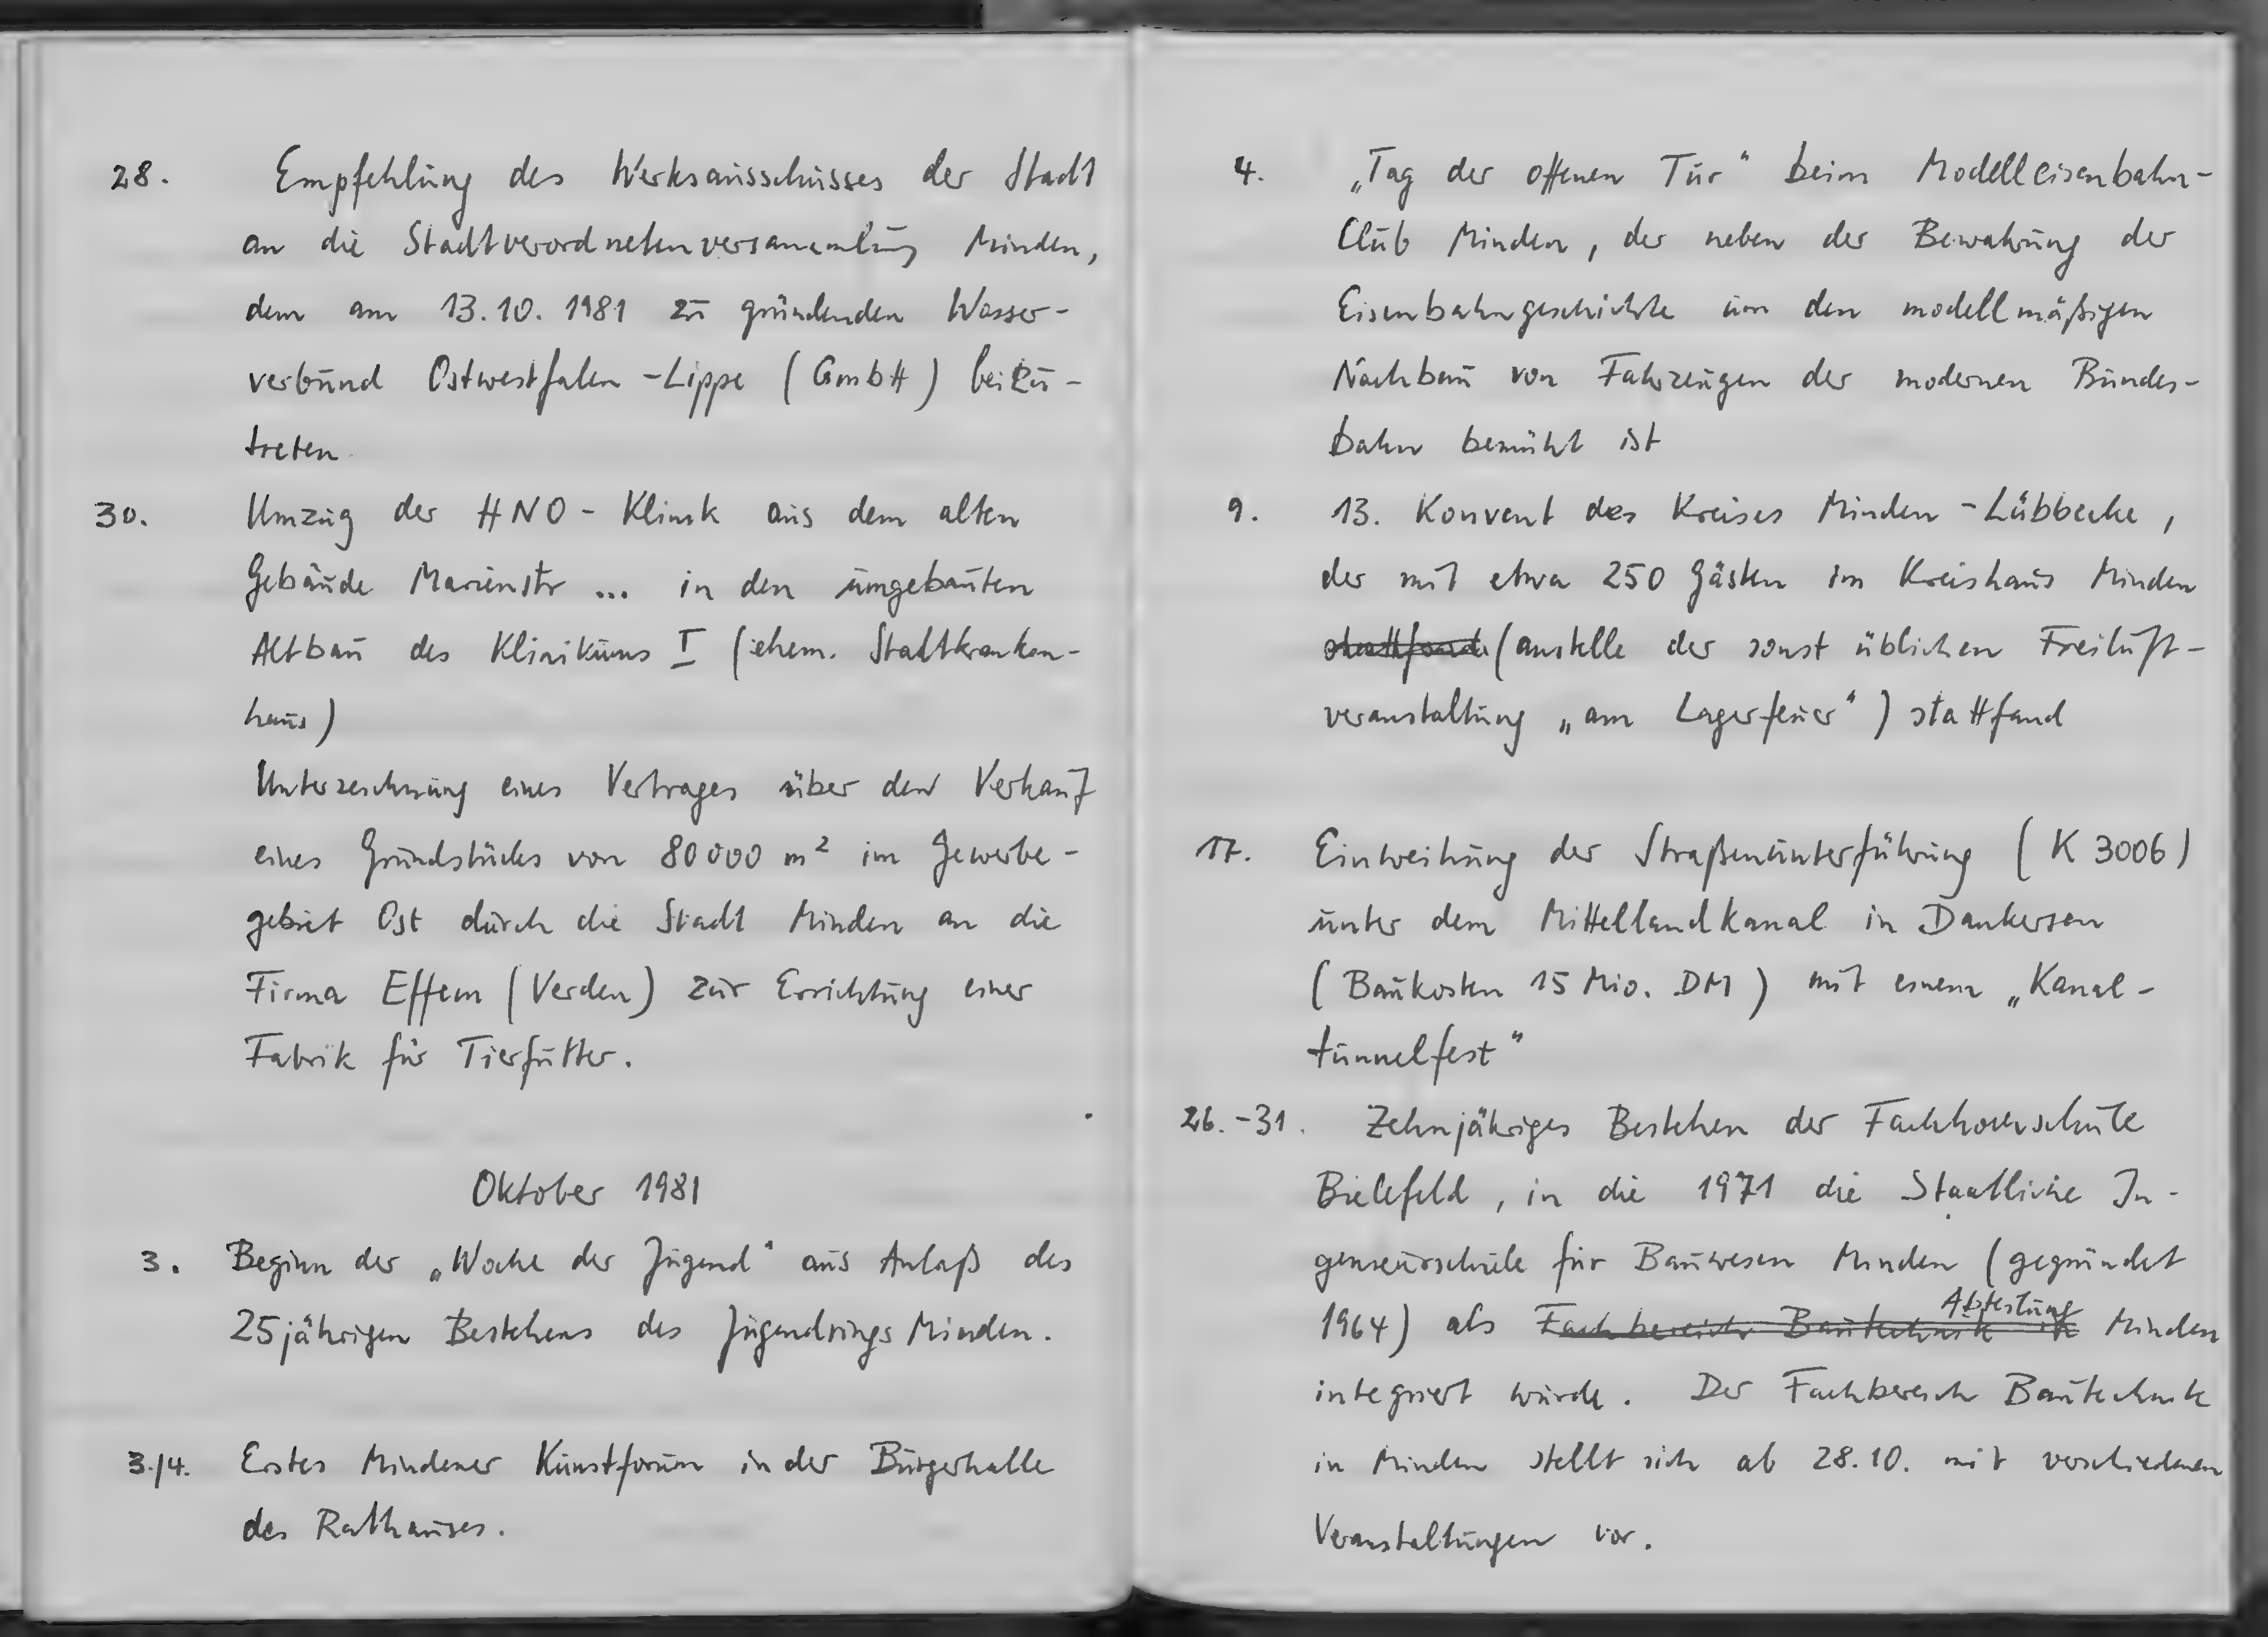 28. Empfehlung des Werksausschusses der Stadt
an die Stadtverordnetenversammlung Minden,
dem am 13.10.1981 zu gründenden Wasser-
verbund Ostwestfalen-Lippe (GmbH) beizu-
treten
30. Umzug der HNO-Klinik aus dem alten
Gebäude Marienstr ... in den umgebauten
Altbau des Klinikums I (ehem. Stadtkranken-
haus)
Unterzeichnung eines Vertrages über den Verkauf
eines Grundstücks von 80000 m² im Gewerbe-
gebiet Ost durch die Stadt Minden an die
Firma Effem (Verden) zur Errichtung einer
Fabrik für Tierfutter.
Oktober 1981
3. Beginn der „Woche der Jugend" aus Anlaß des
25jährigen Bestehens des Jugendrings Minden.
3./4. Erstes Mindener Kunstforum in der Bürgerhalle
des Rathauses.
4. „Tag der offenen Tür" beim Modelleisenbahn-
Club Minden, der neben der Bewahrung der
Eisenbahngeschichte um den modellmäßigen
Nachbau von Fahrzeugen der modernen Bundes-
bahn bemüht ist
9. 13. Konvent des Kreises Minden-Lübbecke,
der mit etwa 250 Gästen im Kreishaus Minden
stattfand (anstelle der sonst üblichen Freiluft-
veranstaltung „am Lagerfeuer") stattfand
17. Einweihung der Straßenunterführung (K 3006)
unter dem Mittellandkanal in Dankersen
(Baukosten 15 Mio. DM) mit einem „Kanal-
tunnelfest"
26.-31. Zehnjähriges Bestehen der Fachhochschule
Bielefeld, in die 1971 die Staatliche In-
genieurschule für Bauwesen Minden (gegründet
Abteilung
1964) als Fachbereich Bautechnik in Minden
integriert wurde. Der Fachbereich Bautechnik
in Minden stellt sich ab 28.10. mit verschiedenen
Veranstaltungen vor.